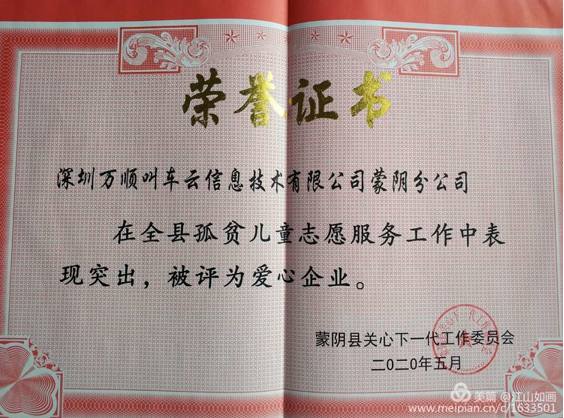 荣誉证书
深圳万顺叫车云信息技术有限公司蒙阴分公司
在全县孤贫儿童志愿服务工作中表
现突出，被评为爱心企业。
蒙阴县关心下一代工作委员会
二〇二〇年五月
美篇 @江山如画
www.meipian.cn/c/1633501